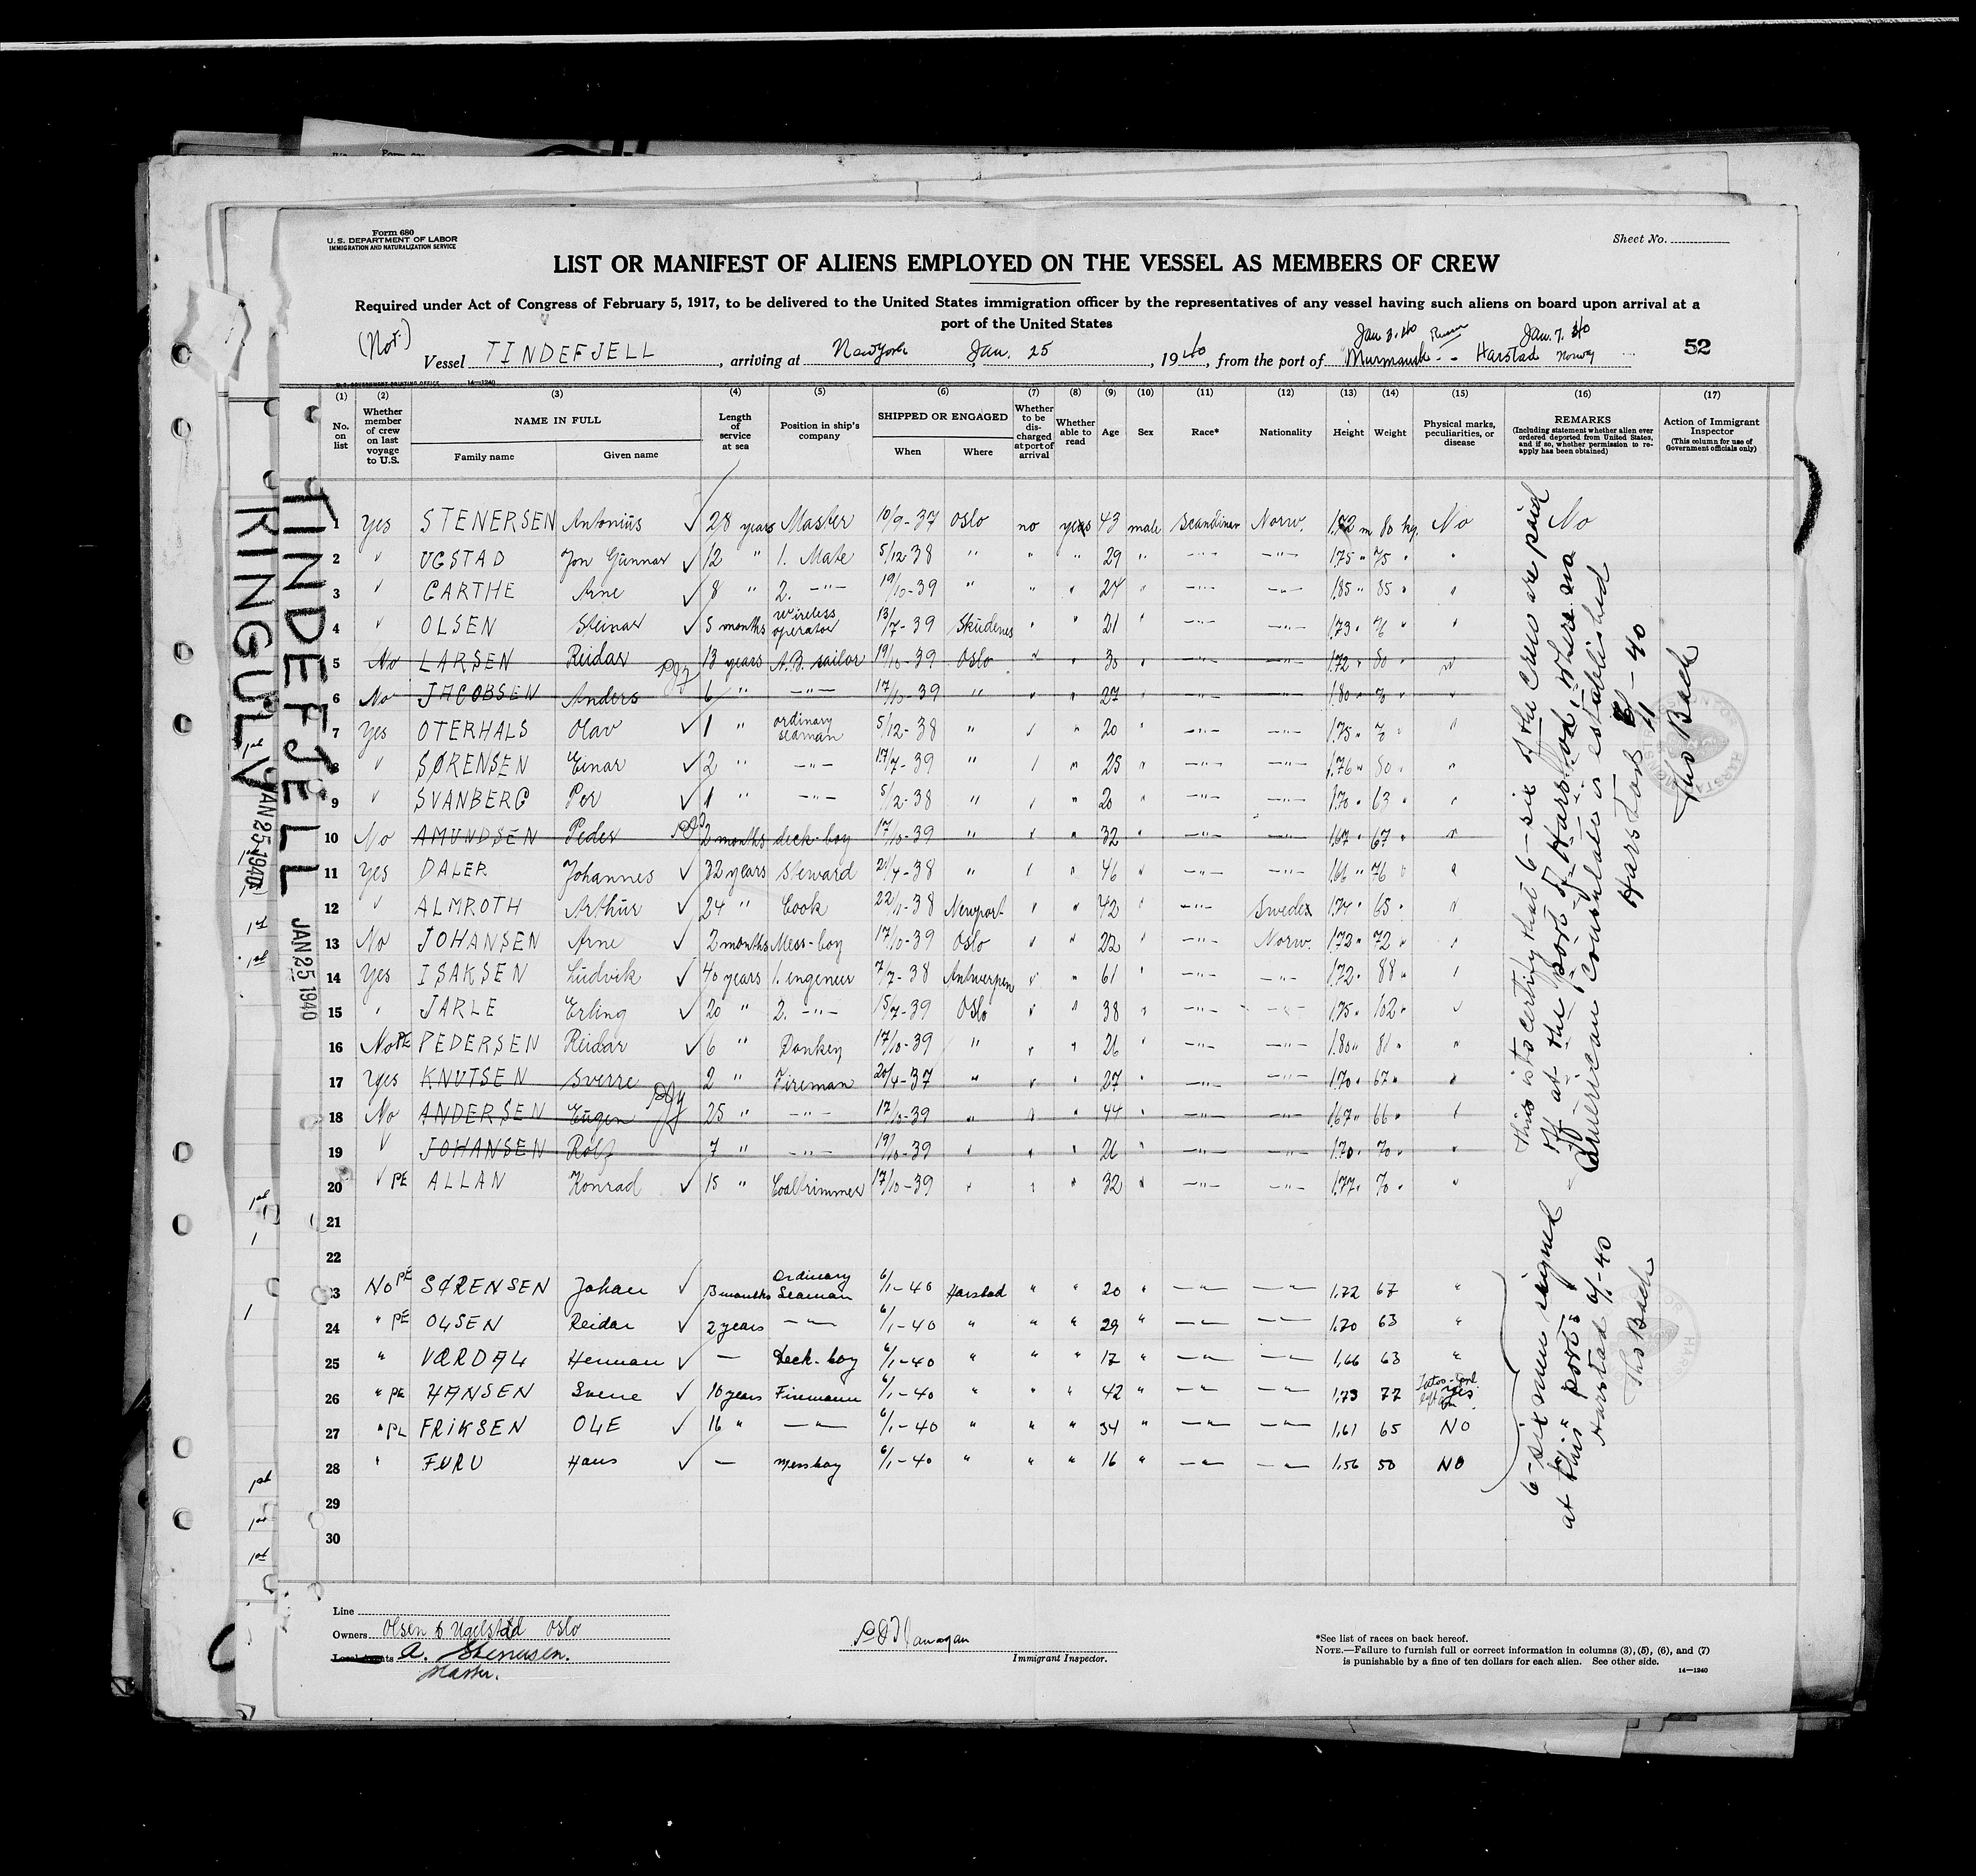 Form 680
U. S. DEPARTMENT OF LABOR
IMMIGRATION AND NATURALIZATION SERVICE
Sheet No.
LIST OR MANIFEST OF ALIENS EMPLOYED ON THE VESSEL AS MEMBERS OF CREW
Required under Act of Congress of February 5, 1917, to be delivered to the United States immigration officer by the representatives of any vessel having such aliens on board upon arrival at a
port of the United States
(Nor.)
Jan 3. 40 Jan. 7. 40
Vessel TINDEFJELL, arriving at New York Jan. 25, 1940, from the port of Murmansk - - Harstad Norway
52
U. S. GOVERNMENT PRINTING OFFICE 14—1240
(1) (2) (3) (4) (5) (6) (7) (8) (9) (10) (11) (12) (13) (14) (15) (16) (17)
No. on list
Whether member of crew on last voyage to U.S.
NAME IN FULL
Family name
Given name
Length of service at sea
Position in ship's company
SHIPPED OR ENGAGED
When
Where
Whether to be discharged at port of arrival
Whether able to read
Age
Sex
Race*
Nationality
Height
Weight
Physical marks, peculiarities, or disease
REMARKS
(Including statement whether alien ever ordered deported from United States, and if so, whether permission to reapply has been obtained)
Action of Immigrant Inspector
(This column for use of Government officials only)
1 Yes STENERSEN Antonius 28 years Master 10/9-37 Oslo no yes 43 male Scandinav Norw. 1.82 m 80 kg. No No
2 " UGSTAD Jon Gunnar 12 " 1. Mate 5/12-38 " " " 29 " -"- -"- 1.75 " 75 " "
3 " GARTHE Arne 8 " 2. -"- 19/10-39 " " " 24 " -"- -"- 1.85 " 85 " "
4 " OLSEN Steinar 5 months wireless operator 13/7-39 Skudenes " " 21 " -"- -"- 1.73 " 76 " "
5 No LARSEN Reidar 13 years A.B. sailor 19/10-39 Oslo " " 30 " -"- -"- 1.72 " 80 " "
6 No JACOBSEN Anders 6 " -"- 17/10-39 " " " 27 " -"- -"- 1.80 " 70 " "
7 Yes OTERHALS Olav 1 " ordinary seaman 5/12-38 " " " 20 " -"- -"- 1.75 " 70 " "
8 " SØRENSEN Einar 2 " -"- 17/7-39 " " " 25 " -"- -"- 1.76 " 80 " "
9 " SVANBERG Per 1 " -"- 5/12-38 " " " 20 " -"- -"- 1.70 " 63 " "
10 No AMUNDSEN Peder 2 months deck-boy 17/10-39 " " " 32 " -"- -"- 1.67 " 67 " "
11 Yes DALER Johannes 32 years Steward 21/4-38 " " " 46 " -"- -"- 1.66 " 76 " "
12 " ALMROTH Arthur 24 " Cook 22/1-38 Newport " " 42 " -"- Sweden 1.74 " 65 " "
13 No JOHANSEN Arne 2 months Mess-boy 17/10-39 Oslo " " 22 " -"- Norw. 1.72 " 72 " "
14 Yes ISAKSEN Ludvik 40 years 1. engineer 7/7-38 Antwerpen " " 61 " -"- -"- 1.72 " 88 " "
15 " JARLE Erling 20 " 2. -"- 15/7-39 Oslo " " 38 " -"- -"- 1.75 " 102 " "
16 No PE PEDERSEN Reidar 6 " Donkey 17/10-39 " " " 26 " -"- -"- 1.80 " 81 " "
17 Yes KNUTSEN Sverre 2 " Fireman 20/4-37 " " " 27 " -"- -"- 1.70 " 67 " "
18 No ANDERSEN Eugen 25 " -"- 17/10-39 " " " 44 " -"- -"- 1.67 " 66 " "
19 " JOHANSEN Rolf 7 " -"- 19/10-39 " " " 26 " -"- -"- 1.70 " 70 " "
20 " PE ALLAN Konrad 15 " Coaltrimmer 17/10-39 " " " 32 " -"- -"- 1.77 " 70 " "
21
22
23 No PE SØRENSEN Johan 13 months Ordinary Seaman 6/1-40 Harstad " " 20 " -"- -"- 1.72 67 "
24 " PE OLSEN Reidar 2 years -"- 6/1-40 " " " 29 " -"- -"- 1.70 63 "
25 " VÆRDAL Herman — Deck-boy 6/1-40 " " " 17 " -"- -"- 1.66 63 "
26 " PE HANSEN Sverre 10 years Firemann 6/1-40 " " " 42 " -"- -"- 1.73 77
27 " PE ERIKSEN OLE 16 " -"- 6/1-40 " " " 34 " -"- -"- 1.61 65 NO
28 " FURU Hans — Messboy 6/1-40 " " " 16 " -"- -"- 1.56 50 NO
29
30
This is to certify that 6-six of the Crew are paid
off at the port of Harstad, where no
American consulate is established
Harstad 6/1-40
Ths Bach
6-six men signed
at this port
Harstad 6/1-40
Ths Bach
TINDEFJELL
JAN 25 1940
KINGULV
JAN 25 1940
Line
Owners Olsen & Ugelstad Oslo
Local Agents A. Stenersen.
Master.
P J Flanagan
Immigrant Inspector.
*See list of races on back hereof.
NOTE.—Failure to furnish full or correct information in columns (3), (5), (6), and (7)
is punishable by a fine of ten dollars for each alien. See other side.
14—1240